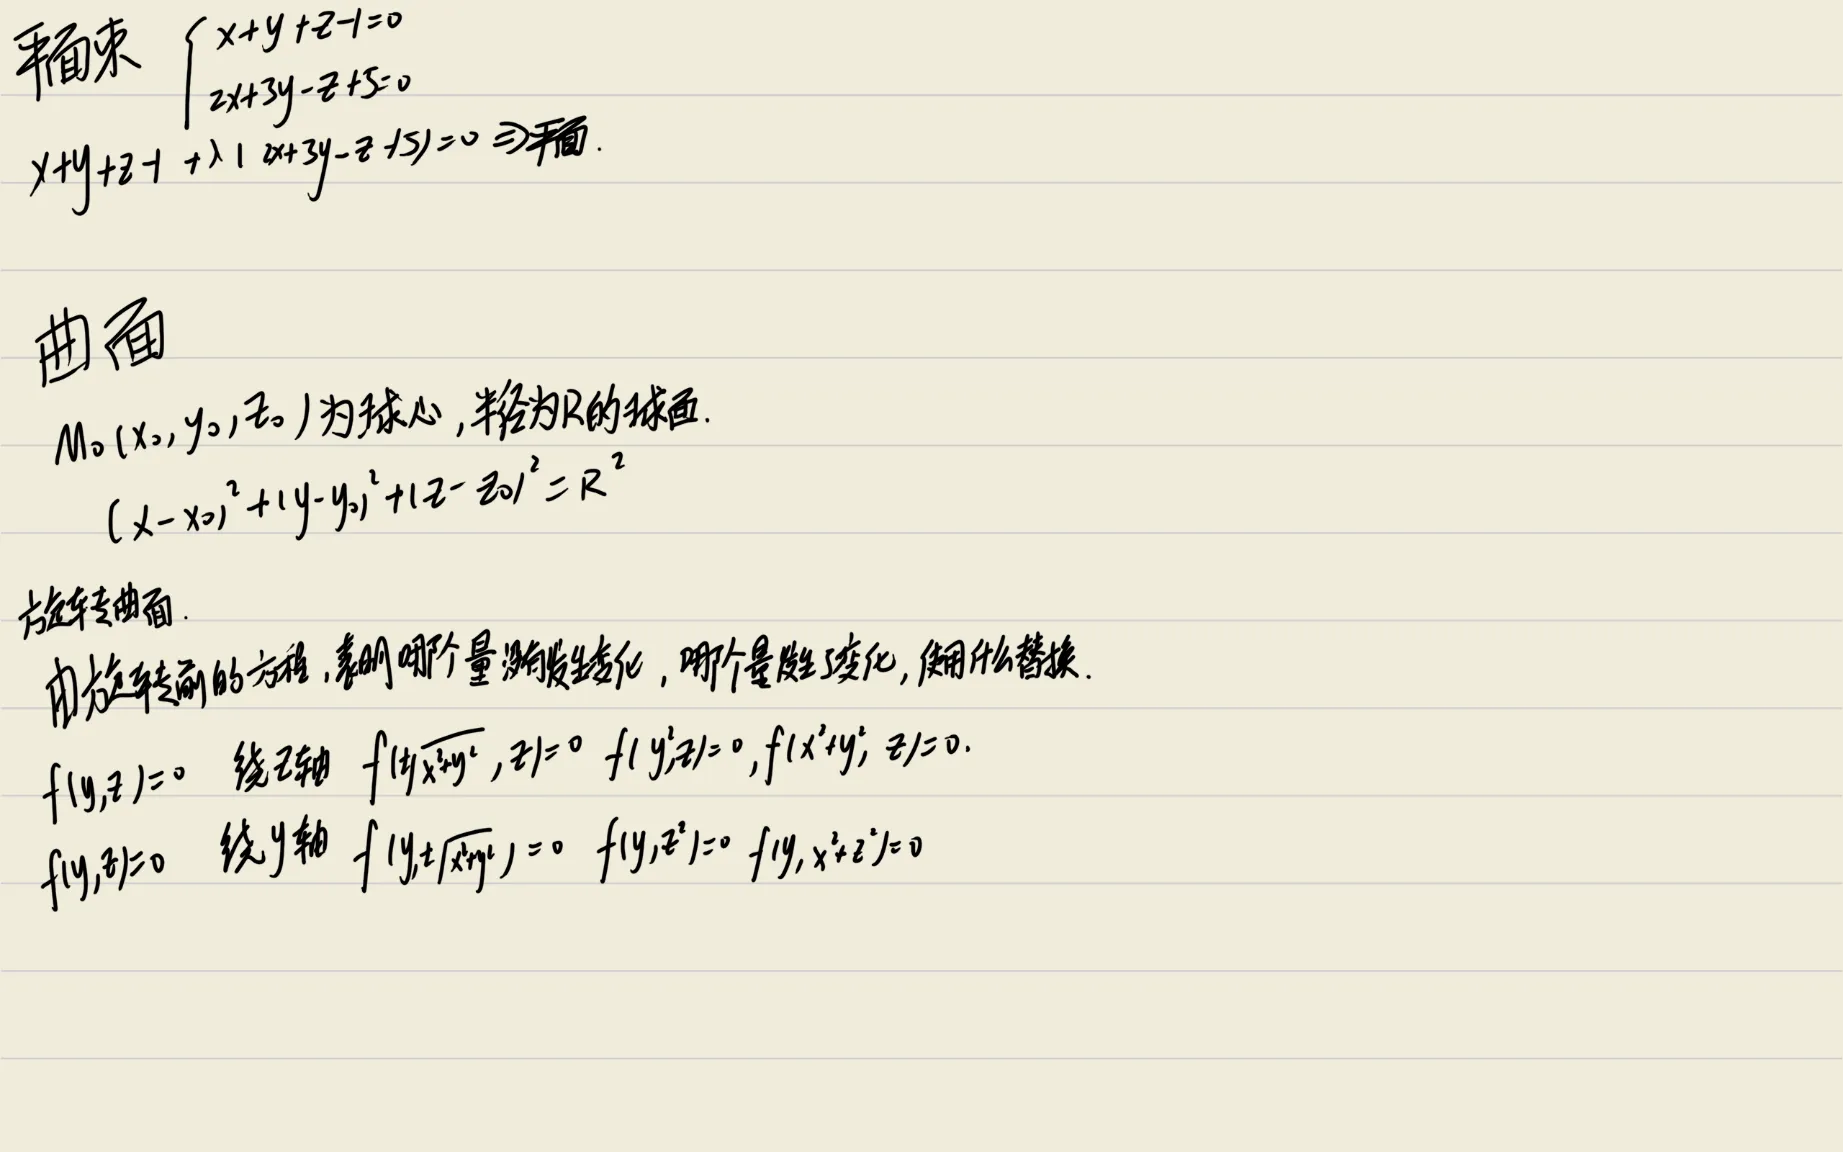 平面束 { x+y+z-1=0
2x+3y-z+5=0
x+y+z-1+λ(2x+3y-z+5)=0 ⇒平面.
曲面
M₀(x₀,y₀,z₀)为球心,半径为R的球面.
(x-x₀)²+(y-y₀)²+(z-z₀)²=R²
旋转曲面.
由旋转前的方程,表明哪个量没有发生变化,哪个量发生了变化,使用什么替换.
f(y,z)=0 绕z轴 f(±√x²+y²,z)=0 f(y²,z)=0,f(x²+y²,z)=0.
f(y,z)=0 绕y轴 f(y,±√x²+y²)=0 f(y,z²)=0 f(y,x²+z²)=0